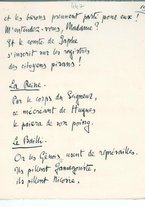 et les barons prennent parti pour eux !
M'entendez-vous, Madame ?
Et le comte de Jaffa
s'inscrit sur les registres
des citoyens pisans !
La Reine.
Par le corps du Seigneur,
ce mécréant de Hugues
le paiera de son poing.
Le Bailli.
Or les Génois usent de représailles.
Ils pillent Famagouste,
ils pillent Nicosie.